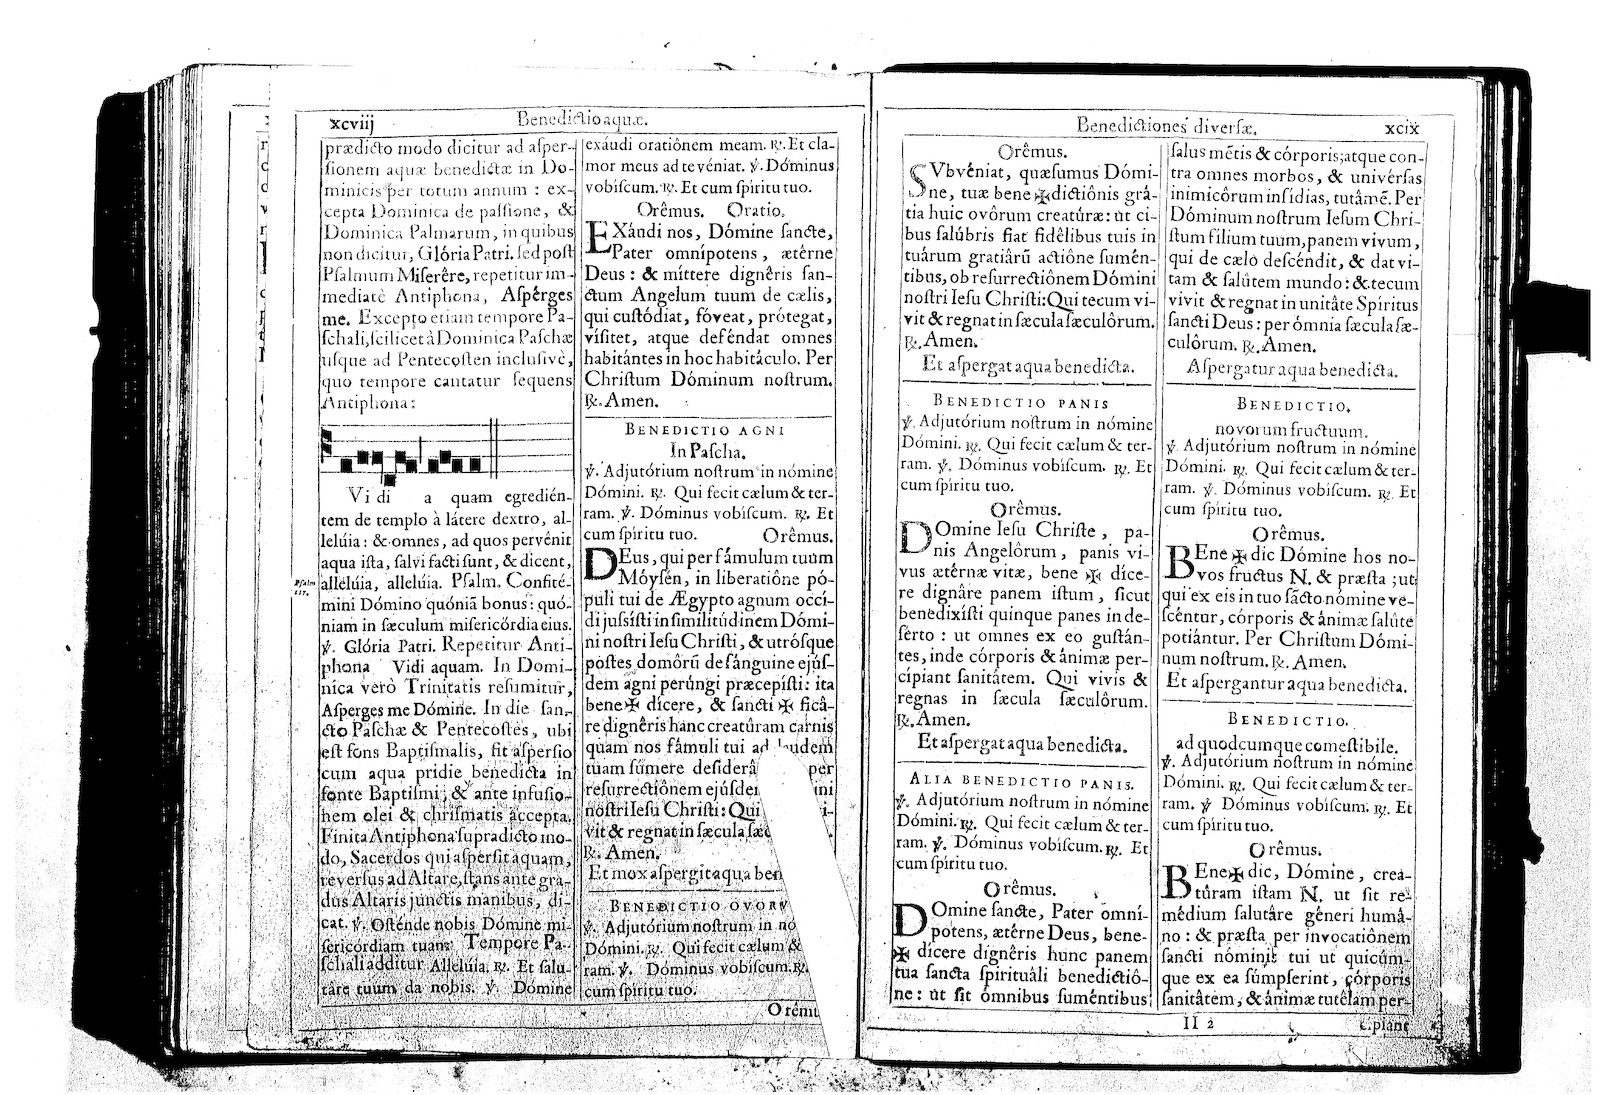 xcviij
Benedictio aquæ.
prædicto modo dicitur ad asper-
sionem aquæ benedictæ in Do-
minicis per totum annum : ex-
cepta Dominica de passione, &
Dominica Palmarum, in quibus
non dicitur, Glória Patri. sed post
Psalmum Miserêre, repetitur im-
mediatè Antiphona, Aspérges
me. Excepto etiam tempore Pa-
schali, scilicet à Dominica Paschæ
usque ad Pentecosten inclusivè,
quo tempore cantatur sequens
Antiphona:
Vi di a quam egredién-
tem de templo à látere dextro, al-
lelúia : & omnes, ad quos pervénit
aqua ista, salvi facti sunt, & dicent,
allelúia, allelúia. Psalm. Confité-
mini Dómino quóniã bonus : quó-
niam in sæculum misericórdia eius.
℣. Glória Patri. Repetitur Anti-
phona Vidi aquam. In Domi-
nica verò Trinitatis resumitur,
Aspérges me Dómine. In die san-
cto Paschæ & Pentecostes, ubi
est fons Baptismalis, fit aspersio
cum aqua pridie benedicta in
fonte Baptismi, & ante infusio-
nem olei & chrismatis accepta.
Finita Antiphona supradicto mo-
do, Sacerdos qui aspersit aquam,
reversus ad Altare, stans ante gra-
dus Altaris junctis manibus, di-
cat. ℣. Osténde nobis Dómine mi-
sericórdiam tuam. Tempore Pa-
schali additur Allelúia. ℟. Et salu-
târe tuum da nobis. ℣. Dómine
Psalm
117.
exáudi oratiônem meam. ℟. Et cla-
mor meus ad te véniat. ℣. Dóminus
vobíscum. ℟. Et cum spíritu tuo.
Orêmus. Oratio.
EXáudi nos, Dómine sancte,
Pater omnípotens, ætérne
Deus : & míttere dignêris san-
ctum Angelum tuum de cælis,
qui custódiat, fóveat, prótegat,
vísitet, atque deféndat omnes
habitántes in hoc habitáculo. Per
Christum Dóminum nostrum.
℟. Amen.
BENEDICTIO AGNI
In Pascha.
℣. Adjutórium nostrum in nómine
Dómini. ℟. Qui fecit cælum & ter-
ram. ℣. Dóminus vobíscum. ℟. Et
cum spíritu tuo. Orêmus.
DEus, qui per fámulum tuum
Móysén, in liberatiône pó-
puli tui de Ægypto agnum occí-
di jussísti in similitúdinem Dómi-
ni nostri Iesu Christi, & utrósque
postes domôrũ de sánguine ejús-
dem agni perúngi præcepísti: ita
bene ✠ dícere, & sancti ✠ ficâ-
re dignêris hanc creatûram carnis
quam nos fámuli tui ad laudem
tuam súmere desiderâ per
resurrectiônem ejúsdem ini
nostri Iesu Christi: Qui vi-
vit & regnat in sæcula sæc
℟. Amen.
Et mox aspergit aqua ben
BENEDICTIO OVORV
℣. Adjutórium nostrum in nó
Dómini. ℟. Qui fecit cælum &
ram. ℣. Dóminus vobíscum. ℟.
cum spíritu tuo.
Orému
Benedictiones diversæ.
xcix
Orêmus.
SVbvéniat, quæsumus Dómi-
ne, tuæ bene ✠ dictiônis grâ-
tia huic ovôrum creatúræ: ùt ci-
bus salúbris fiat fidêlibus tuis in
tuárum gratiârũ actiône sumén-
tibus, ob resurrectiônem Dómini
nostri Iesu Christi: Qui tecum vi-
vit & regnat in sæcula sæculôrum.
℟. Amen.
Et aspergat aqua benedicta.
BENEDICTIO PANIS
℣. Adjutórium nostrum in nómine
Dómini. ℟. Qui fecit cælum & ter-
ram. ℣. Dóminus vobíscum. ℟. Et
cum spíritu tuo.
Orêmus.
DOmine Iesu Christe, pa-
nis Angelôrum, panis vi-
vus ætérnæ vitæ, bene ✠ díce-
re dignâre panem istum, sicut
benedixísti quinque panes in de-
sérto : ut omnes ex eo gustán-
tes, inde córporis & ánimæ per-
cípiant sanitâtem. Qui vivis &
regnas in sæcula sæculôrum.
℟. Amen.
Et aspergat aqua benedicta.
ALIA BENEDICTIO PANIS.
℣. Adjutórium nostrum in nómine
Dómini. ℟. Qui fecit cælum & ter-
ram. ℣. Dóminus vobíscum. ℟. Et
cum spíritu tuo.
Orêmus.
DOmine sancte, Pater omní-
potens, ætérne Deus, bene-
✠ dícere dignêris hunc panem
tua sancta spirituâli benedictiô-
ne : ùt sit ómnibus suméntibus
salus mẽtis & córporis; atque con-
tra omnes morbos, & univérsas
inimicôrum insídias, tutâmẽ. Per
Dóminum nostrum Iesum Chri-
stum filium tuum, panem vivum,
qui de cælo descéndit, & dat vi-
tam & salûtem mundo : & tecum
vivit & regnat in unitâte Spíritus
sancti Deus : per ómnia sæcula sæ-
culôrum. ℟. Amen.
Aspergatur aqua benedicta.
BENEDICTIO,
novorum fructuum.
℣. Adjutórium nostrum in nómine
Dómini. ℟. Qui fecit cælum & ter-
ram. ℣. Dóminus vobíscum. ℟. Et
cum spíritu tuo.
Orêmus.
BEne ✠ dic Dómine hos no-
vos fructus N. & præsta ; ut
qui ex eis in tuo sãcto nómine ve-
scéntur, córporis & ánimæ salûte
potiántur. Per Christum Dómi-
num nostrum. ℟. Amen.
Et aspergantur aqua benedicta.
BENEDICTIO.
ad quodcumque comestibile.
℣. Adjutórium nostrum in nómine
Dómini. ℟. Qui fecit cælum & ter-
ram. ℣ Dóminus vobíscum. ℟. Et
cum spíritu tuo.
Orêmus.
BEne ✠ dic, Dómine, crea-
tûram istam N. ut sit re-
médium salutâre géneri humâ-
no : & præsta per invocatiônem
sancti nóminis tui ut quicúm-
que ex ea súmpserint, córporis
sanitâtem, & ánimæ tutêlam per-
II 2
cípiant